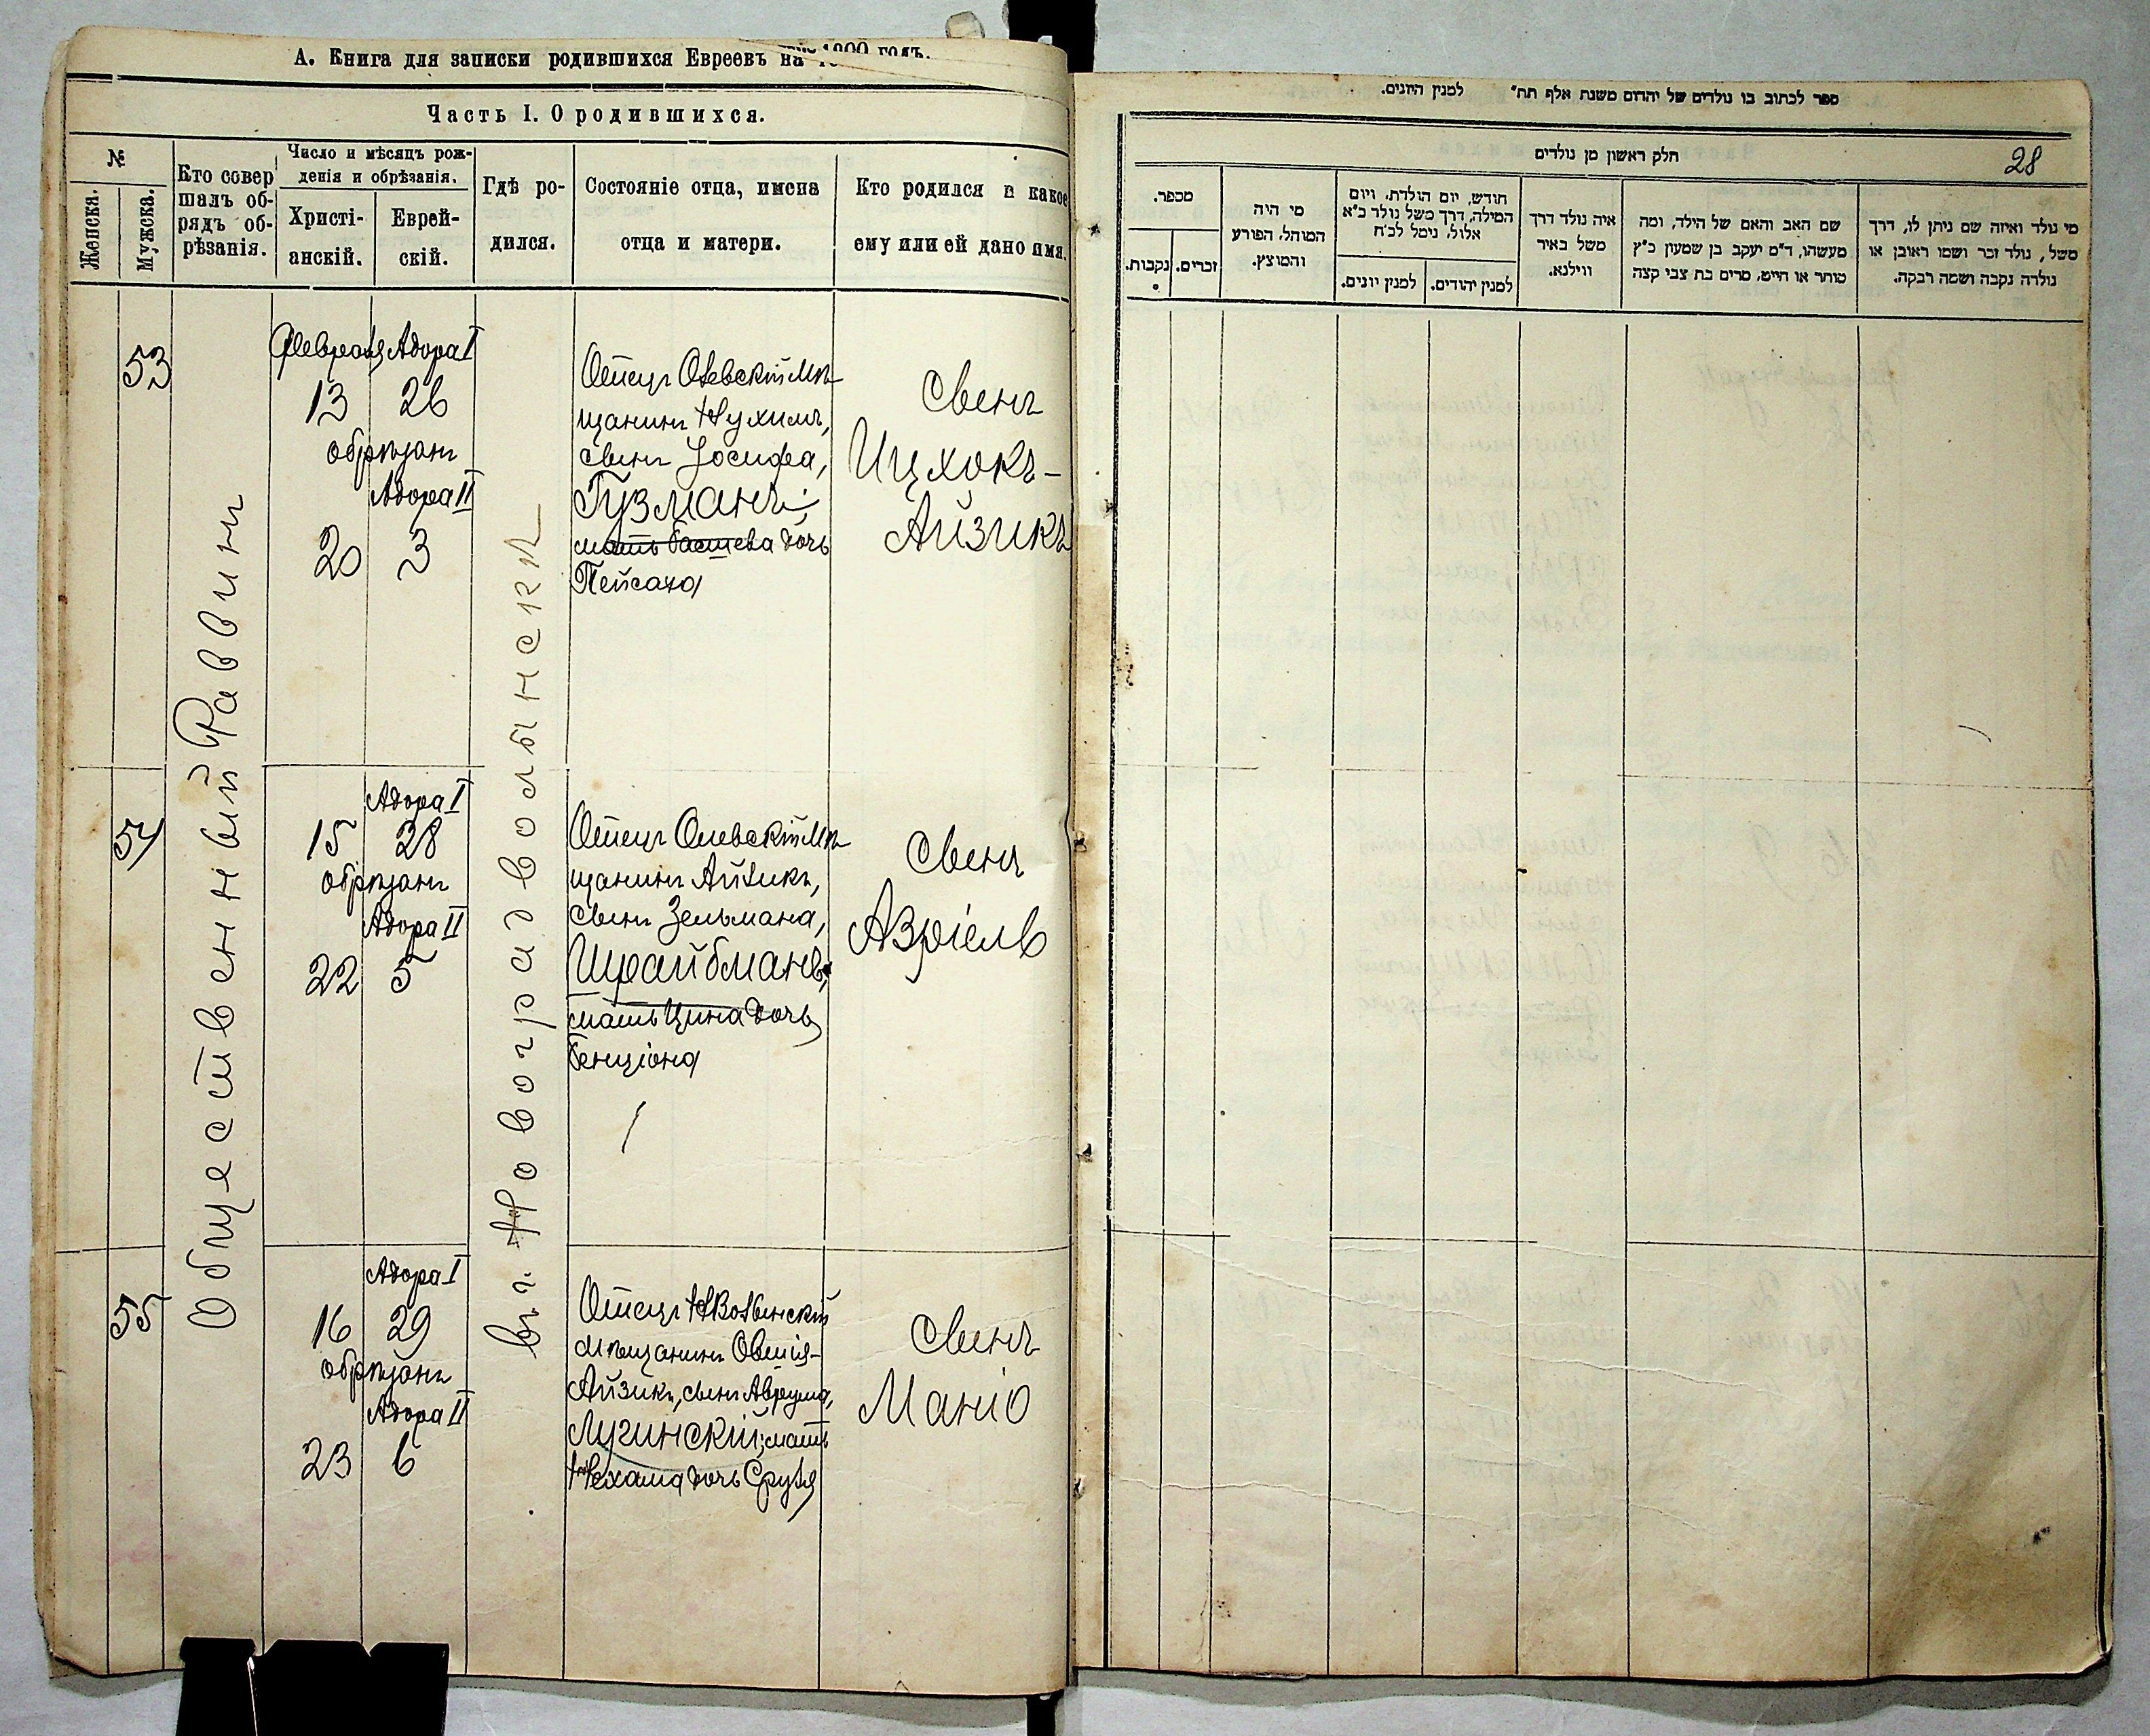 А. Книга для записки родившихся Евреевъ на 1900 годъ.
Часть I. О родившихся.
№
Женска.
Мужска.
Кто совер
шалъ об-
рядъ об-
рѣзанія.
Число и мѣсяцъ рож-
денія и обрѣзанія.
Христі-
анскій.
Еврей-
скій.
Гдѣ ро-
дился.
Состояніе отца, имена
отца и матери.
Кто родился и какое
ему или ей дано имя.
Общественный Раввинъ
въ г. Новоградволынскѣ
53
Февраля Адора I
13 26
обрѣзанъ
Адора II
20 3
Отецъ Олевскій мѣ-
щанинъ Нухимъ,
сынъ Іосифа,
Гузманъ;
мать Басшева дочь
Пейсаха
Сынъ
Ицхокъ-
Айзикъ
54
Адора I
15 28
обрѣзанъ
Адора II
22 5
Отецъ Олевскій мѣ-
щанинъ Айзикъ,
сынъ Зельмана,
Шрайбманъ,
мать Цина дочь
Бенціона
Сынъ
Азріель
55
Адора I
16 29
обрѣзанъ
Адора II
23 6
Отецъ
мѣщанинъ Овшія-
Айзикъ, сынъ Аврума,
Лугинскій; мать
Нехама дочь Сруля
Сынъ
Маніо
ספר לכתוב בו נולדים של יהדום משנת אלף תת" למנין היונים.
חלק ראשון מן נולדים
28
מספר.
זכרים.
נקבות.
מי היה
המוהל, הפורע
והמוצץ.
חודש, יום הולדת, ויום
המילה, דרך משל נולד כ"א
אלול, נימל לכ"ח
למנין יהודים.
למנין יונים.
איה נולד דרך
משל באיר
ווילנא.
שם האב והאם של הילד, ומה
מעשהו, ד"מ יעקב בן שמעון כ"ץ
סוחר או חייט, מרים בת צבי קצה
מי נולד ואיזה שם ניתן לו, דרך
משל, נולד זכר ושמו ראובן או
נולדה נקבה ושמה רבקה.